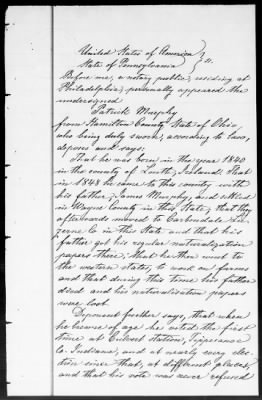 United States of America }
State of Pennsylvania } ss.
Before me, a notary public, residing at
Philadelphia, personally appeared the
undersigned
Patrick Murphy
from Hamilton County, State of Ohio,
who being duly sworn, according to law,
deposes and says:
That he was born in the year 1840
in the county of Louth, Ireland. That
in 1848 he came to this country with
his father, James Murphy, and settled
in Wayne County in this State, that they
afterwards moved to Carbondale Lu-
zerne Co in this State and that his
father got his regular naturalization
papers there; that he then went to
the western states, to work on farms
and that during this time his father
died and his naturalisation papers
were lost.
Deponent further says, that when
he became of age he voted the first
time at Culver Station, Tippecanoe
Co. Indiana, and at nearly every elec-
tion since that, at different places,
and that his vote was never refused